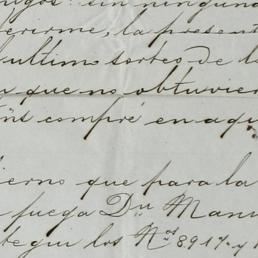 sin ningun
erirme, la present
ultimo sorteo de l
que no obtuvier
compré en aqu
ierno que para la
fuega Dn Man
tegui los Nos 8917. y